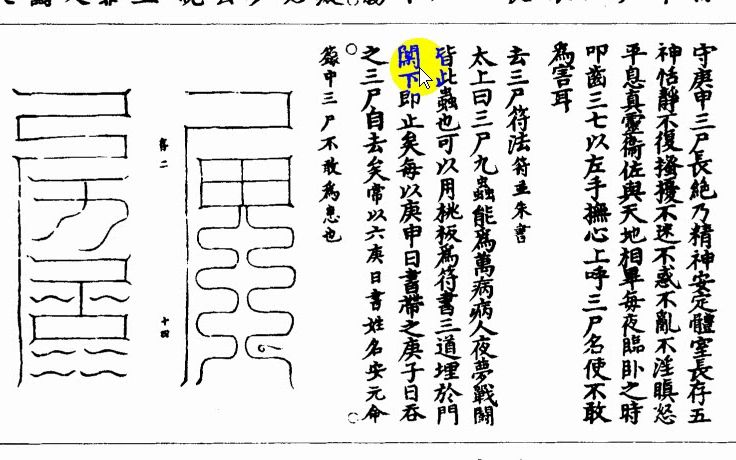 守庚申三尸長絶乃精神安定體室長存五
神恬靜不復搔擾不迷不惑不亂不淫瞋怒
平息真靈衞佐與天地相畢每夜臨卧之時
叩齒三七以左手撫心上呼三尸名使不敢
為害耳
去三尸符法符並朱書
太上曰三尸九蟲能為萬病病人夜夢戰鬪
皆此蟲也可以用桃板為符書三道埋於門
閫下即止矣每以庚申日書帶之庚子日吞
之三尸自去矣常以六庚日書姓名安元命
籙中三尸不敢為患也
十四